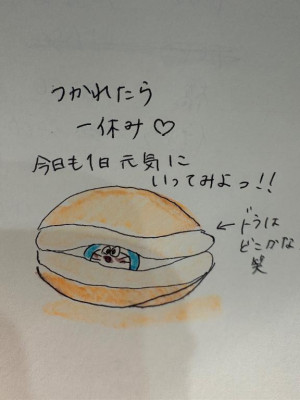 つかれたら
一休み♡
今日も1日元気に
いってみよっ!!
←ドラは
どこかな
笑